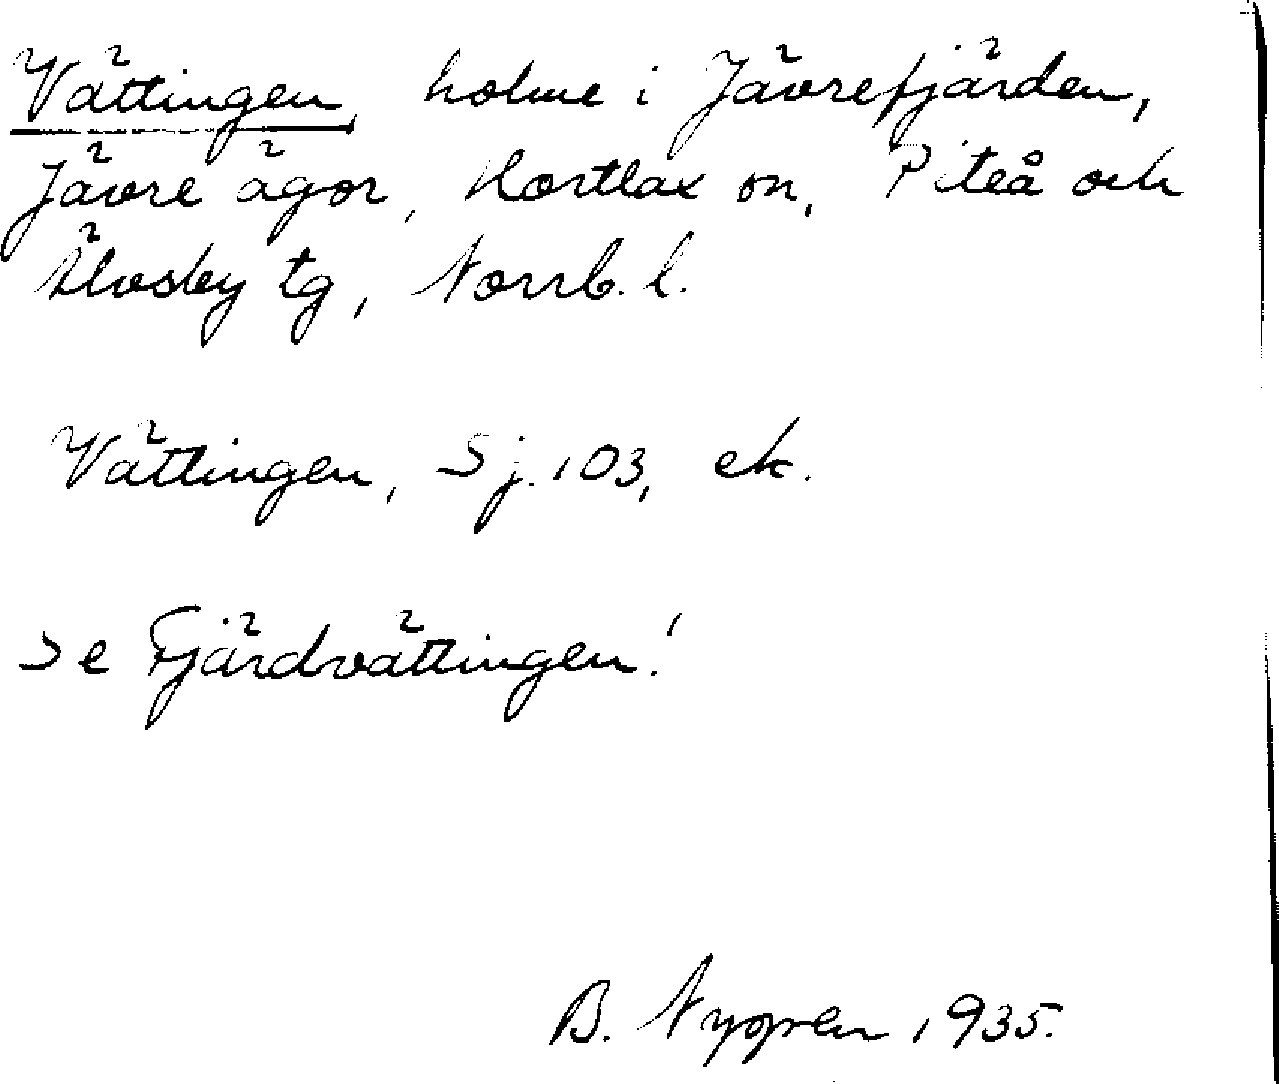 Vättingen, holme i Jävrefjärden,
Jävre ägor, Hortlax sn, Piteå och
Älvsby tg, Norrb. l.
Vättingen, Sj. 103, ek.
Se Fjärdvättingen!
B. Nygren 1935.